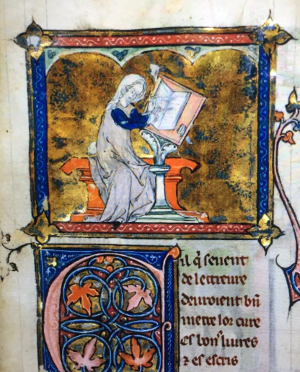 Cil qͥ seuent
de lettreure
deuroient bñ
mettre lor cure
es bons liures
⁊ es escris